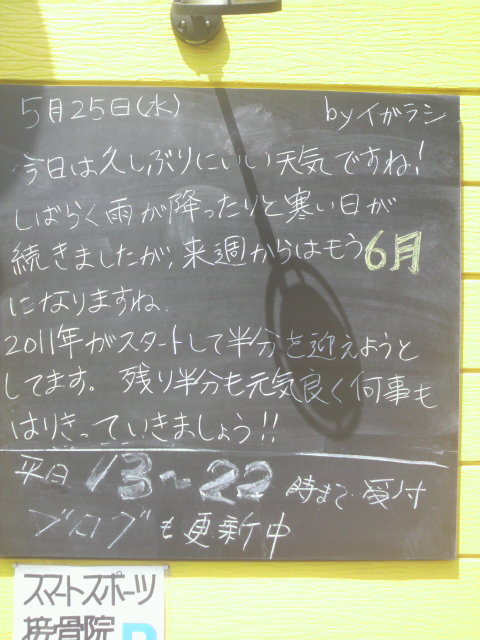 5月25日(水) byイガラシ
今日は久しぶりにいい天気ですね!
しばらく雨が降ったりと寒い日が
続きましたが、来週からはもう6月
になりますね.
2011年がスタートして半分を迎えようと
してます。残り半分も元気良く何事も
はりきっていきましょう!!
平日 13〜22時まで受付
ブログも更新中
スマートスポーツ
接骨院 P